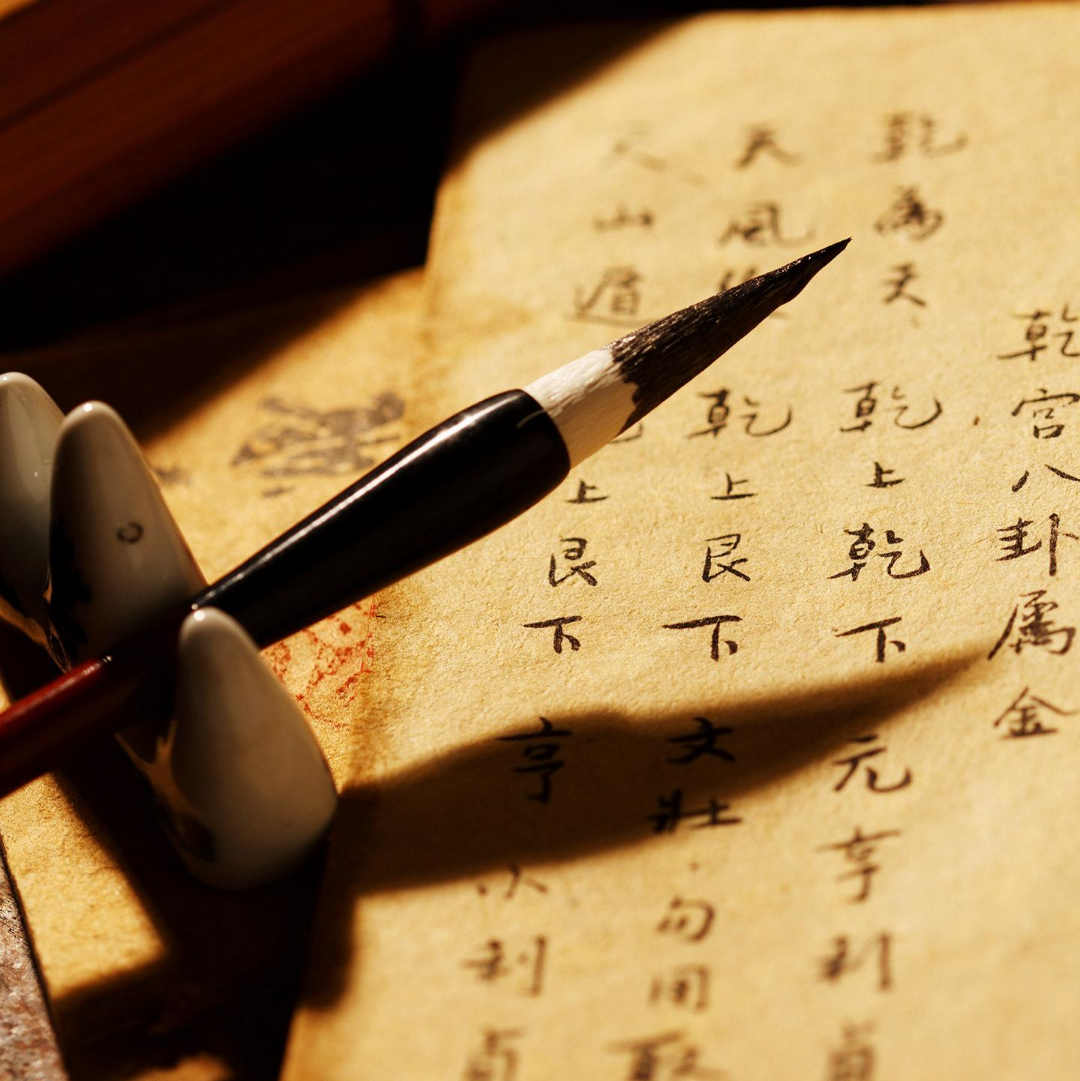 乾宮八卦属金
乾為天 乾上乾下 元亨利貞
天風 乾上艮下 文壯勿用取
天山遁 上艮下 亨小利貞